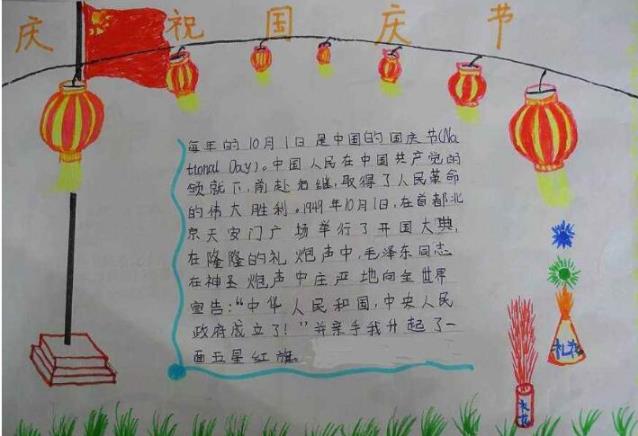 庆祝国庆节
每年的10月1日是中国的国庆节(Na
tional Day)。中国人民在中国共产党的
领就下,前赴后继,取得了人民革命
的伟大胜利。1949年10月1日,在首都北
京天安门广场举行了开国大典,
在隆隆的礼炮声中,毛泽东同志
在神圣炮声中庄严地向全世界
宣告:“中华人民和国,中央人民
政府成立了!”并亲手我升起了一
面五星红旗。
礼花